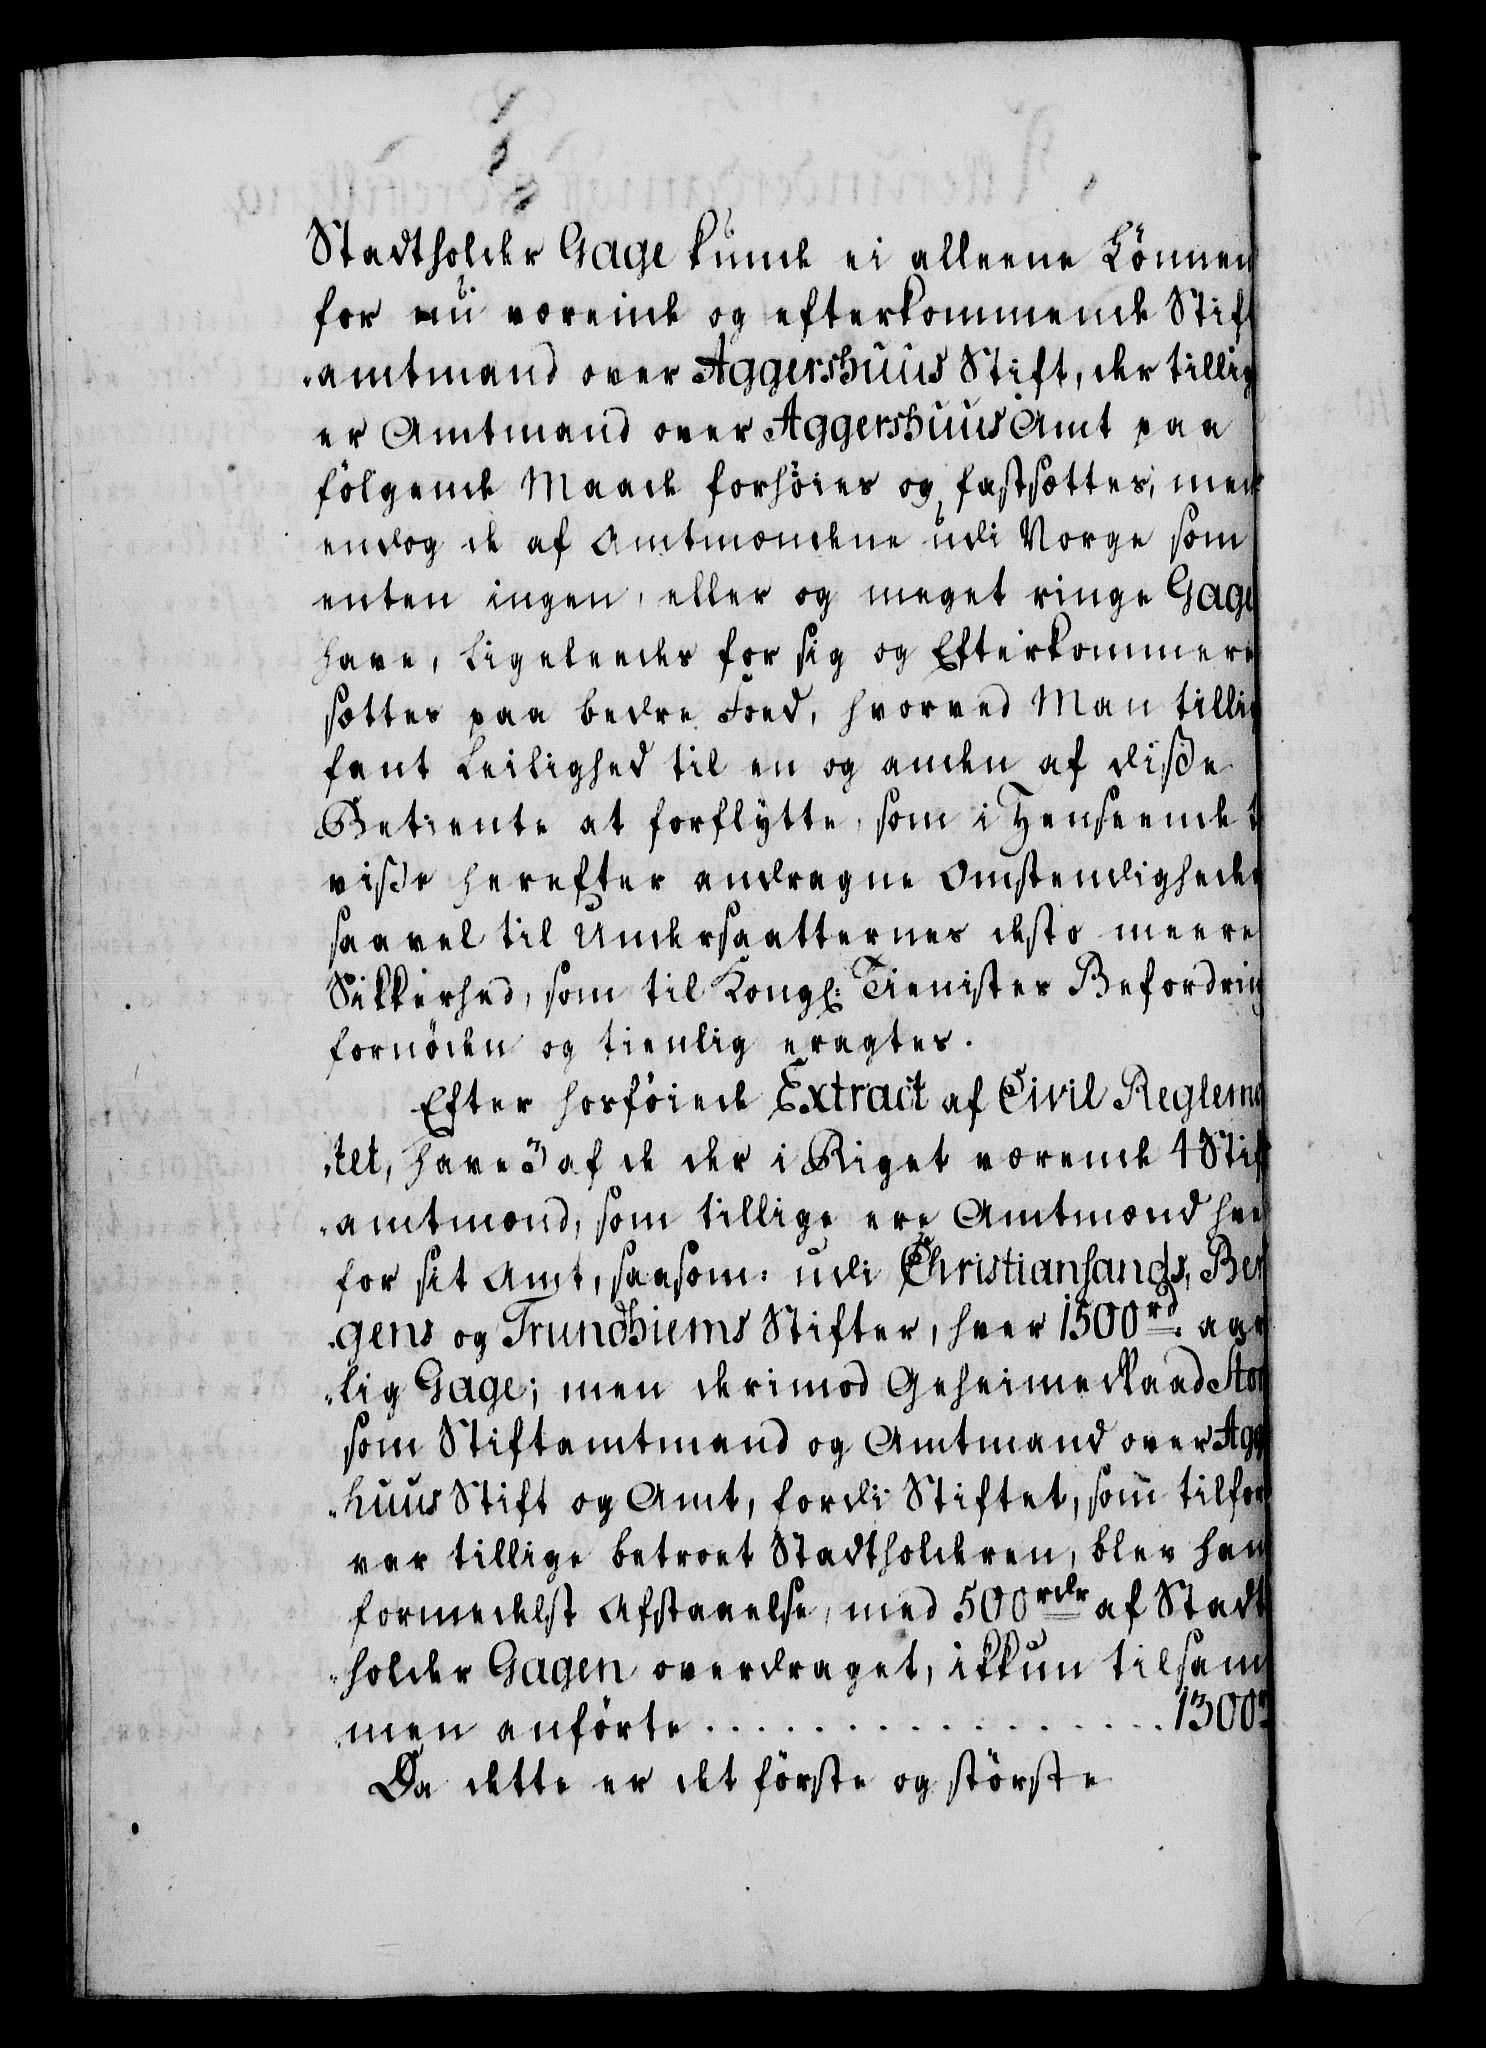 Stadtholder Gage kunde ei alleene Lönnen
for nu værende og efterkommende Stift
amtmand over Aggershuus Stift, der tillig
er Amtmand over Aggershuus Amt paa
fölgende Maade forhöies og fastsættes, men
endog de af Amtmændene udi Norge som
enten ingen, eller og meget ringe Gage
have, Ligeleedes for sig og Efterkommere
sættes paa bedre Foed, hvorved Man tillig
fant Leilighed til en og anden af disse
Betiente at forflytte, som i Henseende t
visse herefter andragne Omstendigheder
saavel til Undersaatternes desto meere
Sikkerhed, som til Kongl: Tienistes Befordring
fornöden og tienlig eragtes.
Efter hosföiede Extract af Civil Reglemen
tet, have 3 af de der i Riget værende 4 Stift
amtmænd, som tillige ere Amtmænd hver
for sit Amt, saasom: udi Christiansands, Ber
gens og Trundhiems Stifter, hver 1500 rd. aar
lig Gage; men derimod Geheimeraad Stor
som Stiftamtmand og Amtmand over Agg
huus Stift og Amt, fordi Stiftet, som tilfor
var tillige betroet Stadtholderen, blev ham
formedelst Afstaaelse, med 500 rdr af Stadt
holder Gagen overdraget, ikkun tilsam
men anförte . . . . . . . . . . . . . . . 1300 r
Da dette er det förste og störste